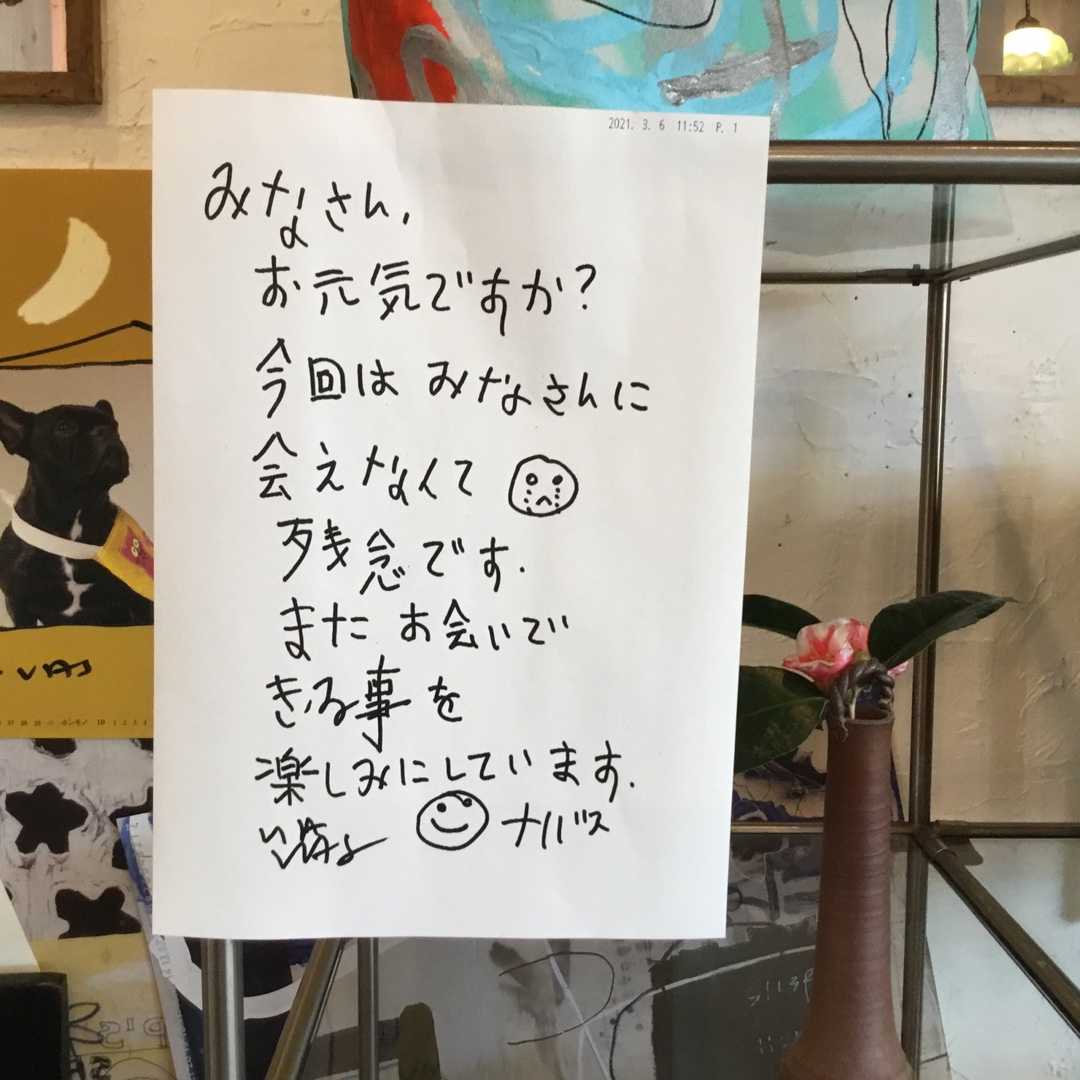 2021. 3. 6 11:52 P. 1
みなさん,
お元気ですか?
今回は みなさんに
会えなくて
残念です.
また お会いで
きる事を
楽しみにしています.
ナバス